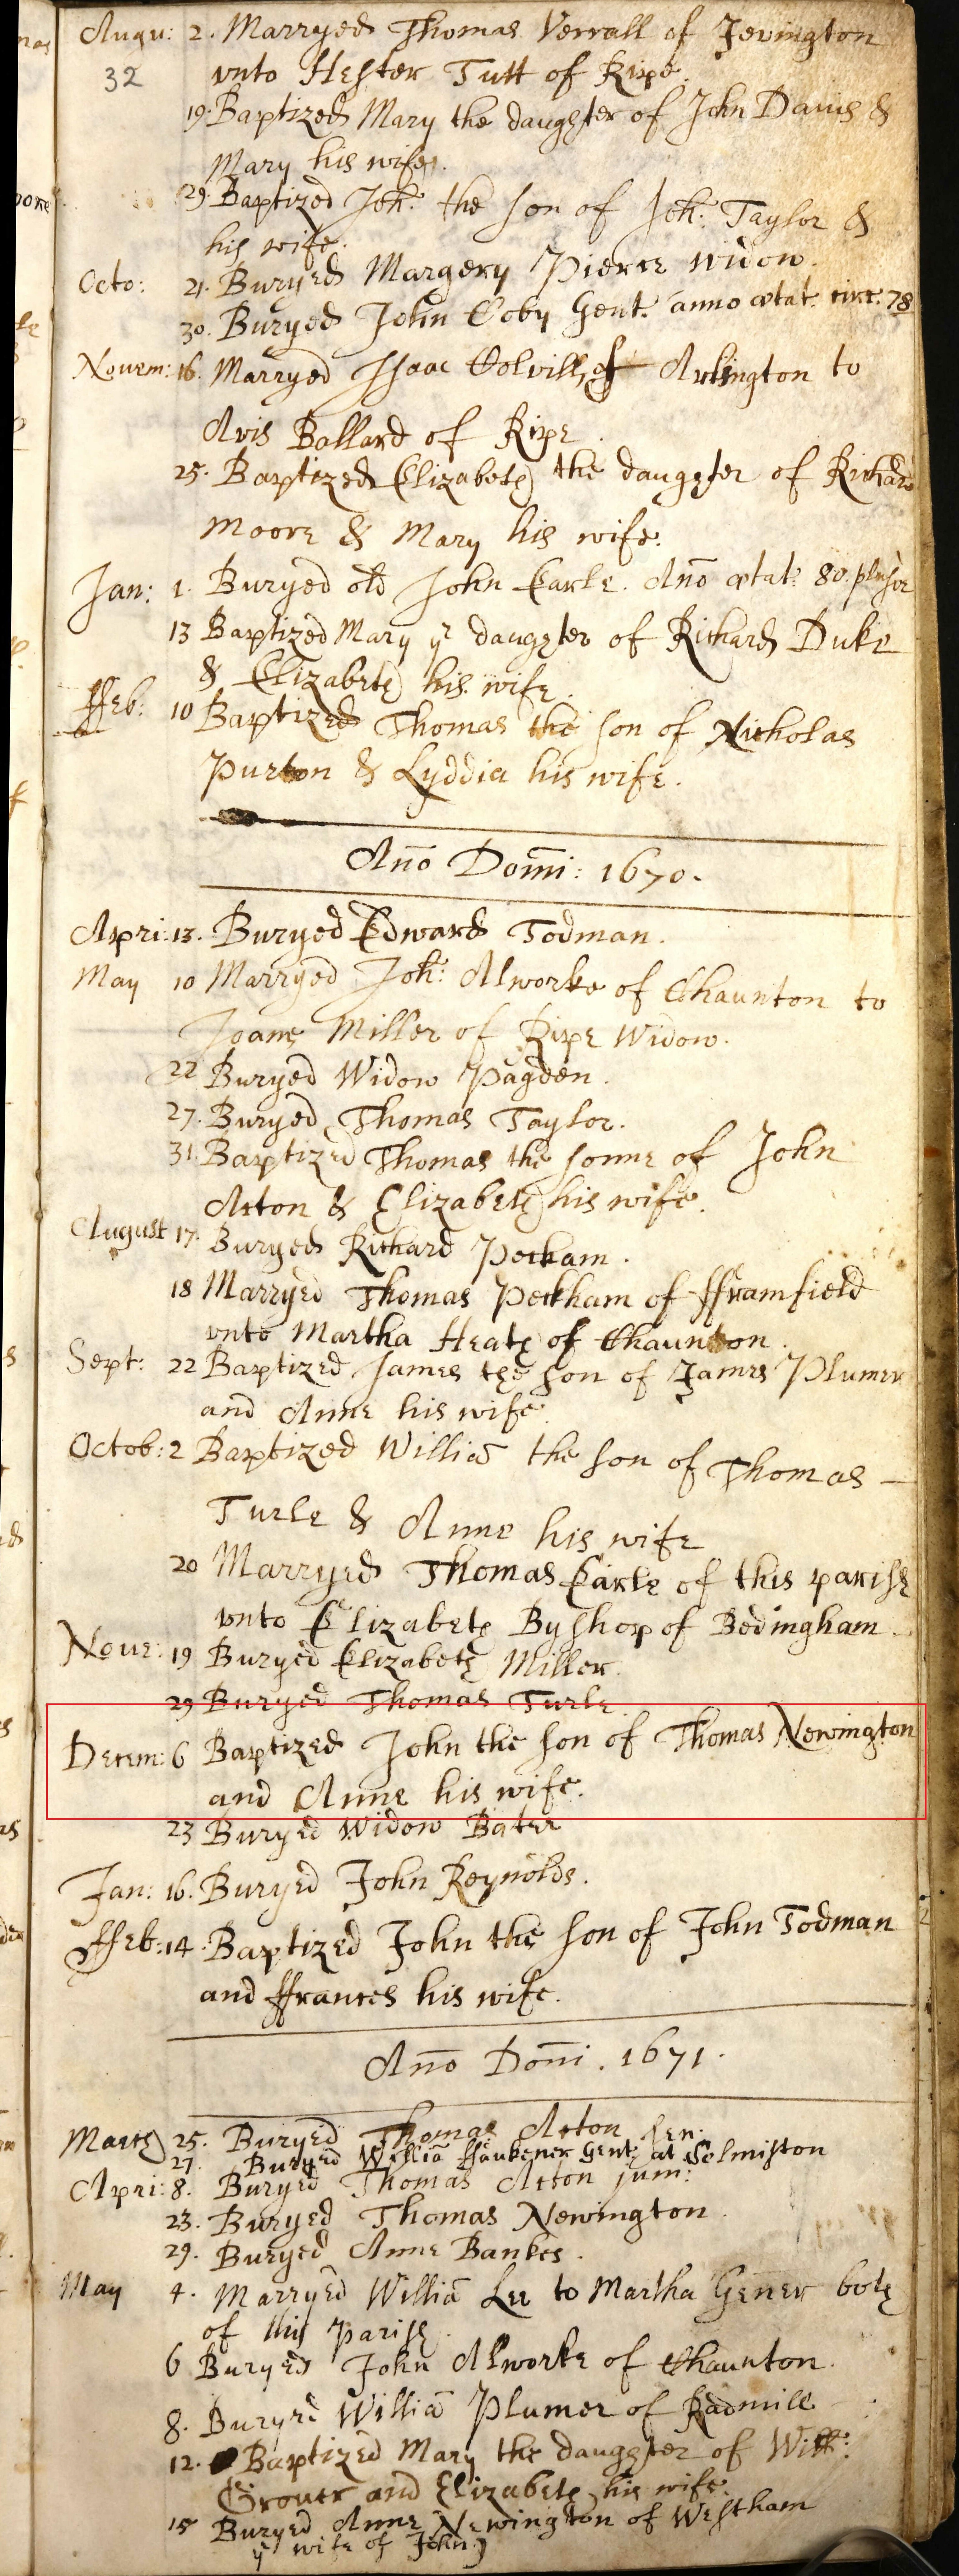 Augu: 2. Marryed Thomas Verrall of Jevington
32
vnto Hester Tutt of Ripe.
19. Baptized Mary the daughter of John Davis &
Mary his wife.
29. Baptized Joh: the son of Joh: Taylor &
his wife.
Octo: 21. Buryed Margery Pierce widow.
30. Buryed John Coby Gent. anno ætat. circ. 78
Novem: 16. Marryed Isaac Colvill, of Arlington to
Avis Ballard of Ripe.
25. Baptized Elizabeth the daughter of Richard
Moore & Mary his wife.
Jan: 1. Buryed old John Earle. Ano ætat: 80.
13 Baptized Mary ye daughter of Richard Duke
& Elizabeth his wife.
ffeb: 10 Baptized Thomas the son of Nicholas
Purton & Lyddia his wife.
Ano Domi: 1670.
Apri: 13. Buryed Edward Todman.
May 10 Marryed Joh: Alworke of Chaunton to
Joane Miller of Ripe Widow.
22 Buryed Widow Pagden.
27. Buryed Thomas Taylor.
31. Baptized Thomas the sonne of John
Acton & Elizabeth his wife.
August 17. Buryed Richard Peckam.
18 Marryed Thomas Peckham of fframfield
vnto Martha Heath of Chaunton.
Sept: 22 Baptized James the son of James Plumer
and Anne his wife.
Octob: 2 Baptized Williā the son of Thomas —
Turle & Anne his wife
20 Marryed Thomas Earle of this parish
vnto Elizabeth Byshop of Bedingham.
Nove: 19 Buryed Elizabeth Miller.
29 Buryed Thomas Turle.
Decem: 6 Baptized John the son of Thomas Newington
and Anne his wife.
23 Buryed Widow Bater
Jan: 16. Buryed John Reynolds.
ffeb: 14. Baptized John the son of John Todman
and ffrances his wife.
Ano Domi. 1671.
March 25. Buryed Thomas Acton sen:
27. Buryed Williā ffaukener Gent: at Selmiston
Apri: 8. Buryed Thomas Acton jun:
23. Buryed Thomas Newington.
29. Buryed Anne Bankes.
May 4. Marryed Williā Lee to Martha Gener both
of this Parish.
6 Buryed John Alworke of Chaunton.
8. Buryed Williā Plumer of Radmill
12. Baptized Mary the daughter of Will:
Grover and Elizabeth his wife.
15 Buryed Anne Newington of Westham
ye wife of John